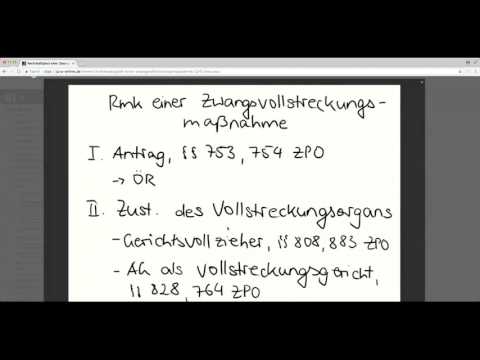 Rmk einer Zwangsvollstreckungs-
maßnahme
I. Antrag, §§ 753, 754 ZPO
→ ÖR
II. Zust. des Vollstreckungsorgans
- Gerichtsvollzieher, §§ 808, 883 ZPO
- AG als Vollstreckungsgericht,
§§ 828, 764 ZPO